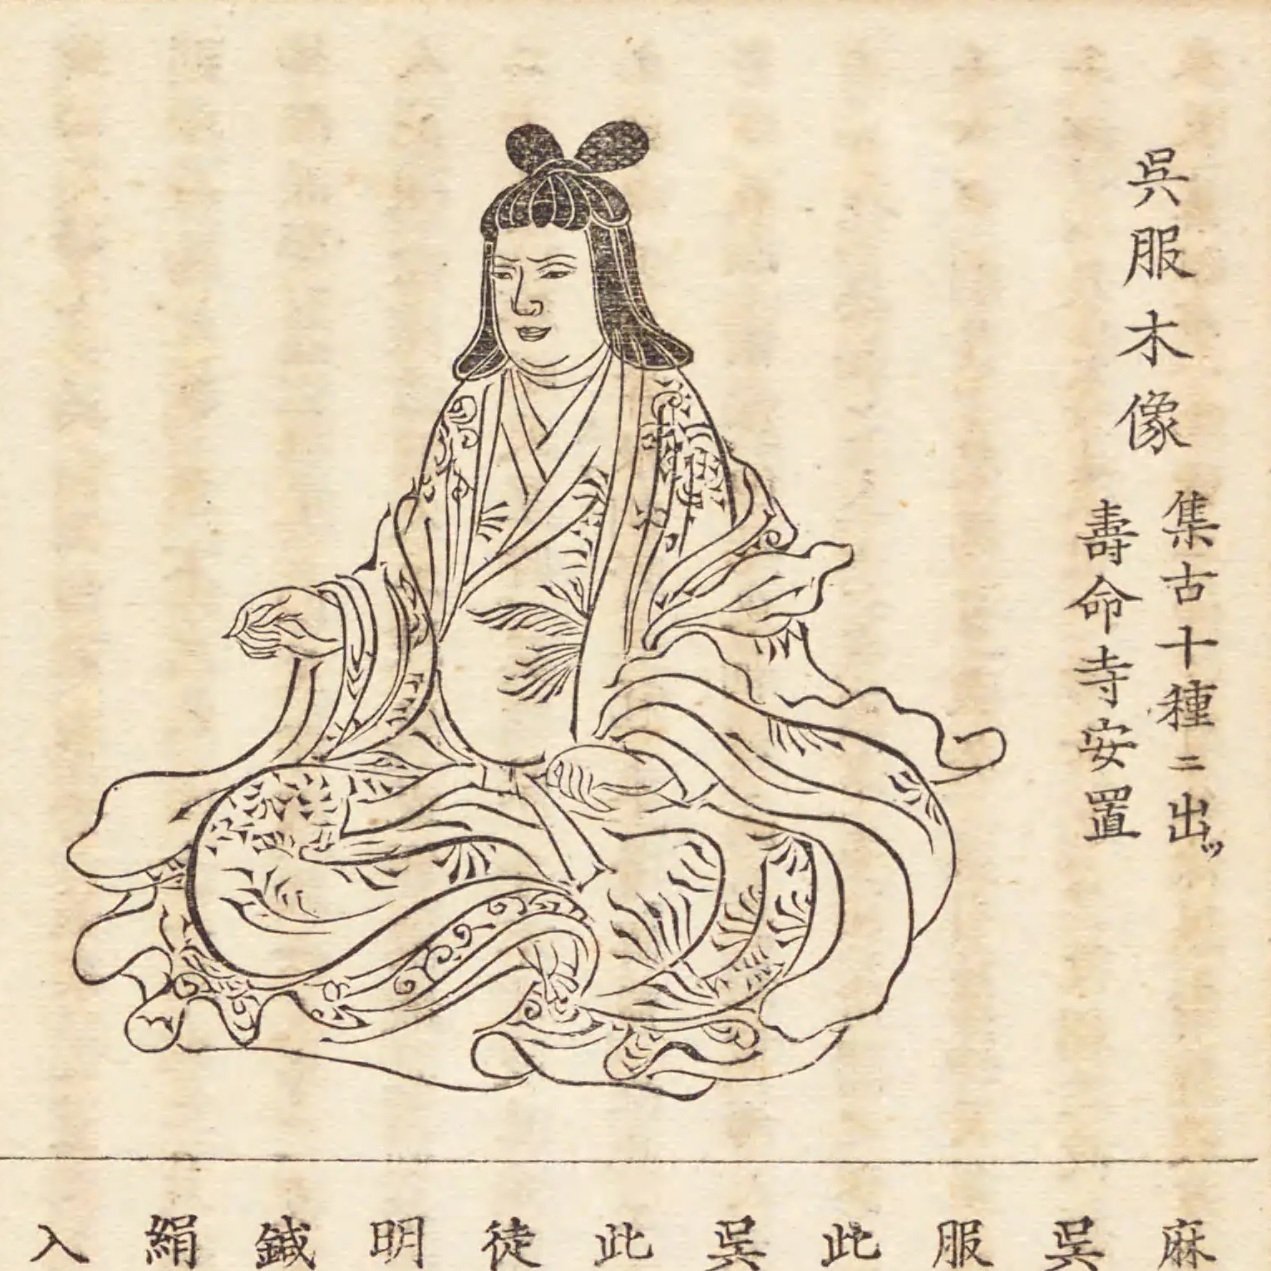 呉服木像
集古十種ニ出ヅ
壽命寺安置
麻
呉
服
此
呉
此
徒
明
鍼
絹
入